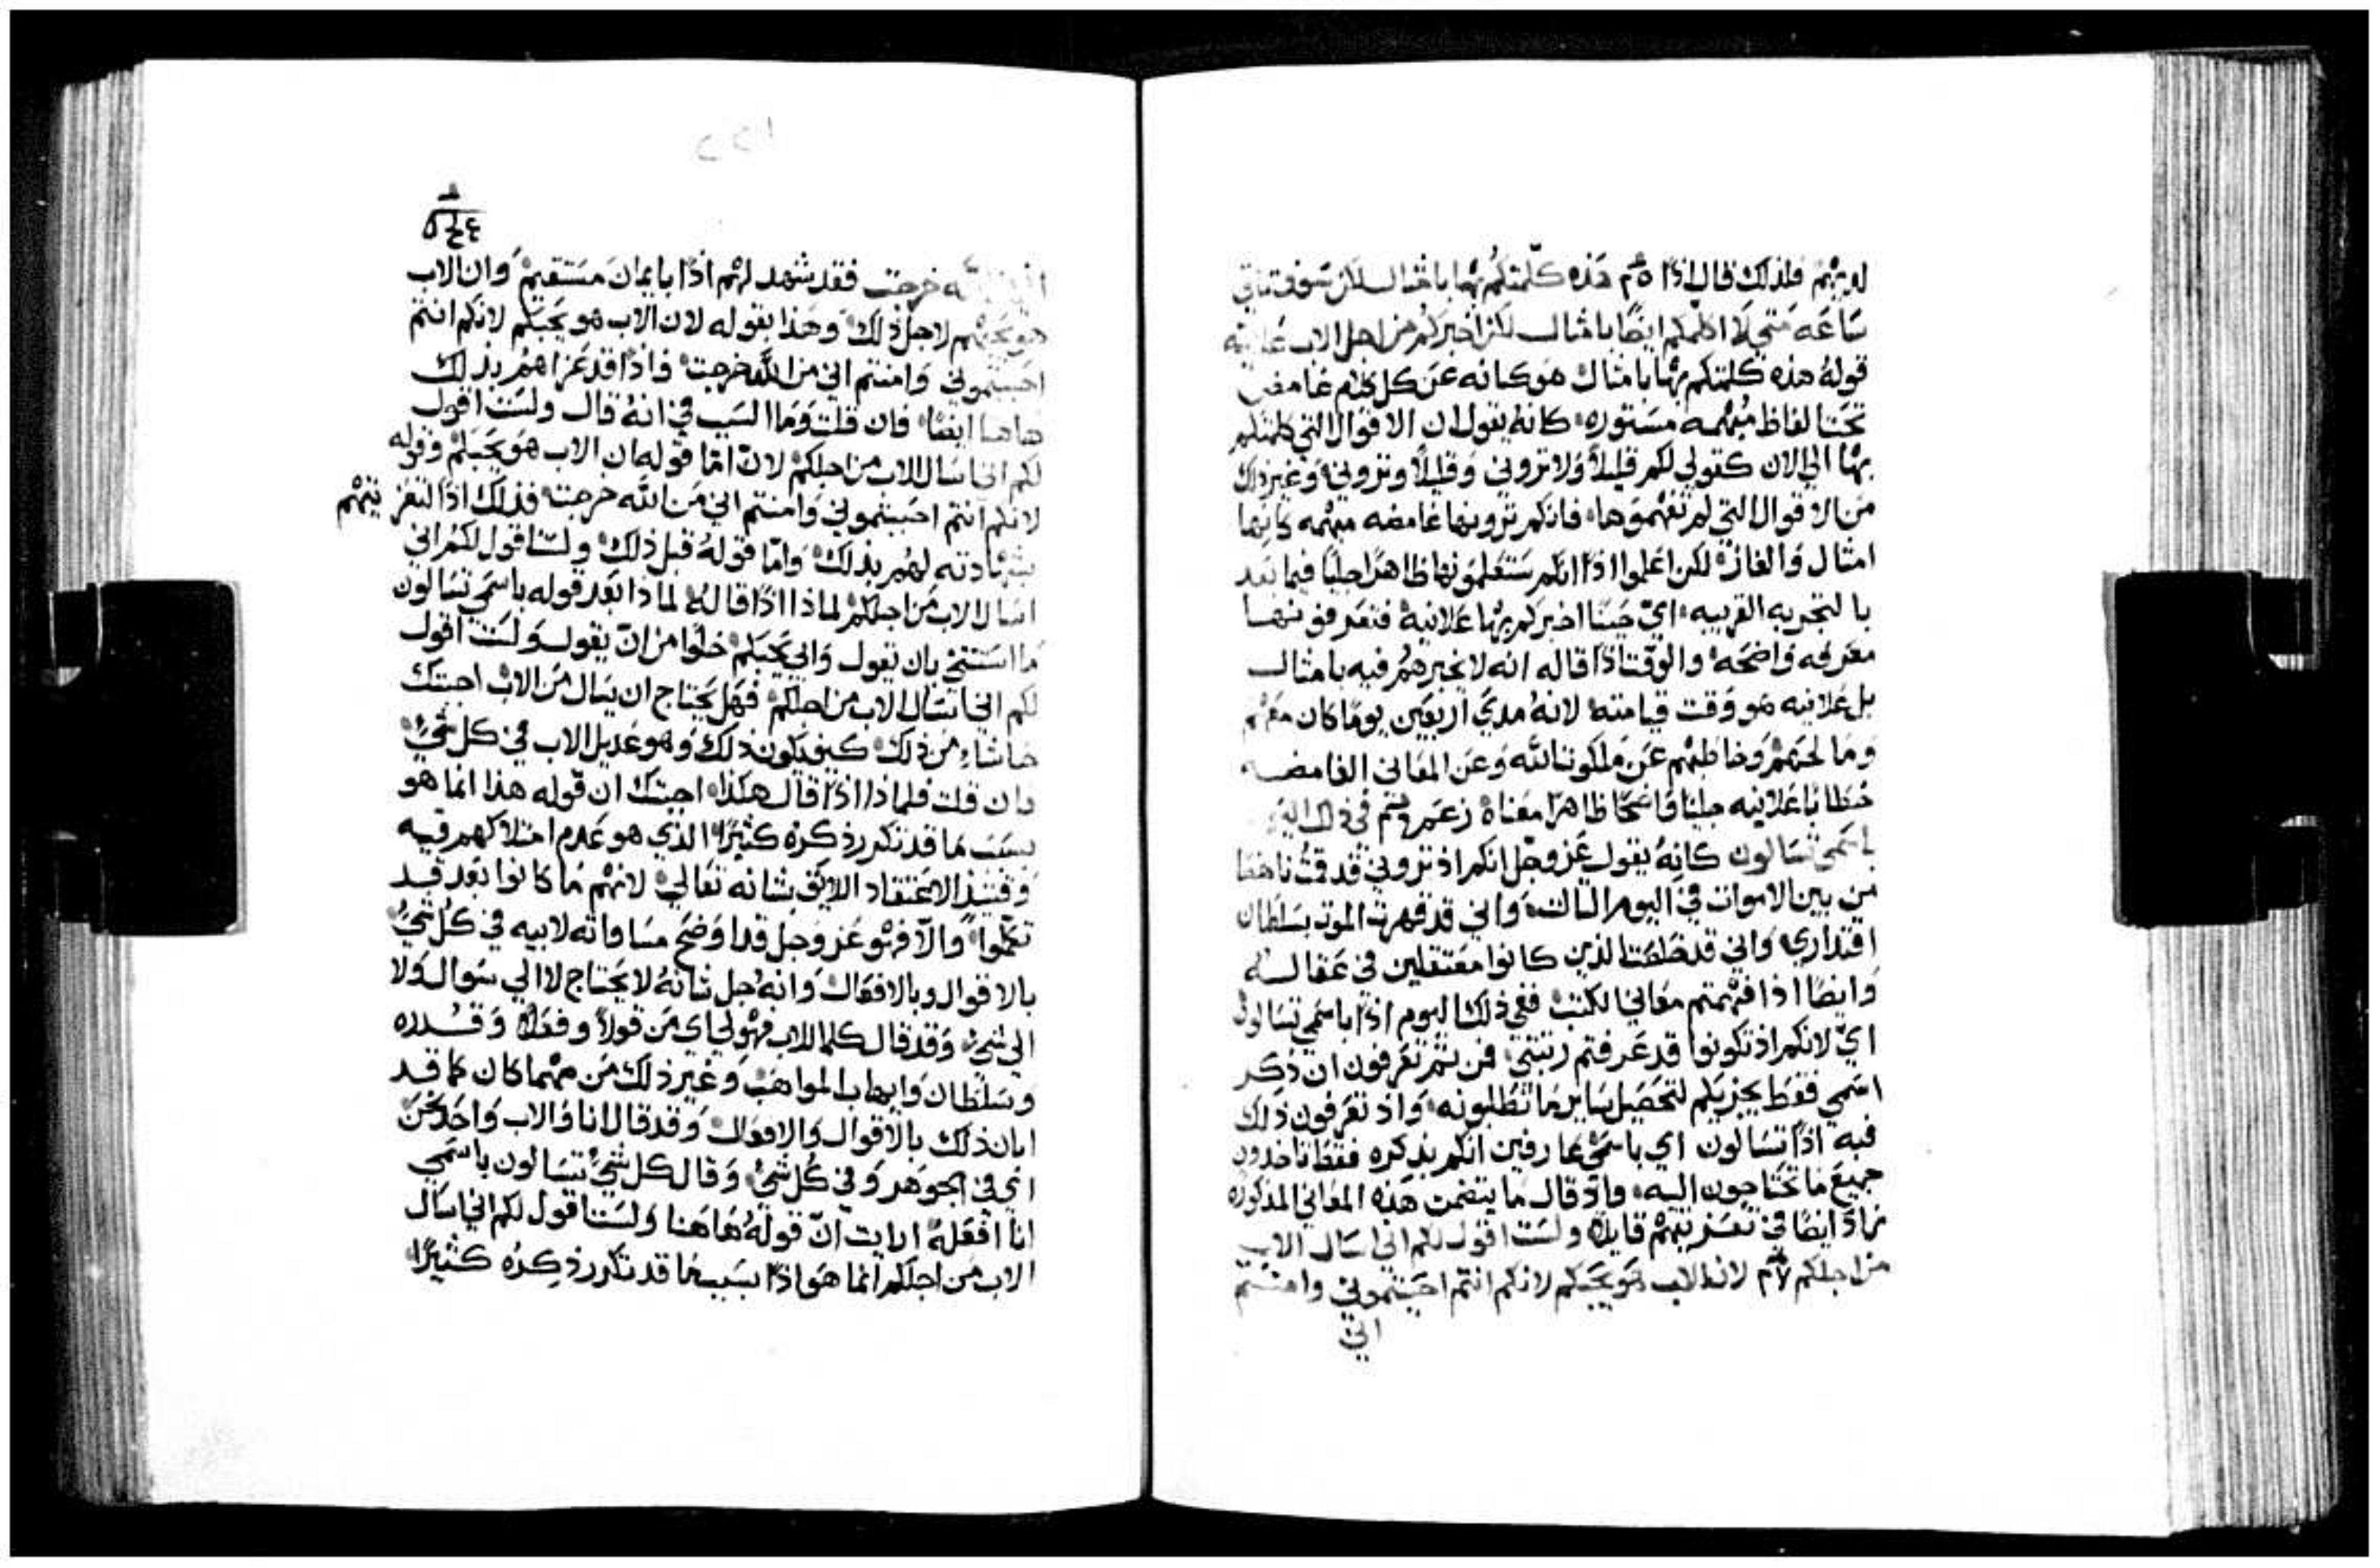 لديهم فلذلك قال اذًا هذه كلمتكم بها بامثال لكن سوف تاتي
ساعه متى لا اكلمكم ايضًا بامثال لكن اخبركم من اجل الاب علانيه
قوله هذه كلمتكم بها بامثال هو كنايه عن كل كلام غامض
تحت الفاظ مبهمه مستوره كانه يقول ان الاقوال التي كلمتكم
بها الي الان كقولي لكم قليلاً ولا تروني وقليلاً وتروني وغير ذلك
من الاقوال التي لم تفهموها فانكم ترونها غامضه مبهمه كانها
امثال والغاز لكن اعلموا اذًا انكم ستعلمونها ظاهرًا جليًا فيما بعد
بالتجربه القريبه اي حينًا اخبركم بها علانيه فتعرفونها
معرفه واضحه والوقت اذًا قاله انه لا يخبرهم فيه بامثال
بل علانيه هو وقت قيامته لانه مدي اربعين يومًا كان معهم
ومالحهم وخاطبهم عن ملكوت الله وعن المعاني الغامضه
خطابًا علانيه جليًا واضحًا ظاهرًا معناه في ذلك اليوم
باسمي تسالون كانه يقول عز وجل انكم اذ تروني قد قمت ناهضًا
من بين الاموات في اليوم الثالث واني قد قهرت الموت بسلطان
اقتداري واني قد خلصت الذين كانوا معتقلين في عقاله
وايضًا اذا فهمتم معاني الكتب ففي ذلك اليوم اذًا باسمي تسالون
اي لانكم اذ تكونوا قد عرفتم رتبتي فمن ثم تعرفون ان ذكر
اسمي فقط يجزيكم لتحصيل ساير ما تطلبونه واذ تعرفون ذلك
فبه اذًا تسالون اي باسمي عارفين انكم بذكره فقط تاخذون
جميع ما تحتاجون اليه واذ قال ما يتضمن هذه المعاني المذكوره
زاد ايضًا في تعزيتهم قايلاً ولست اقول لكم اني اسال الاب
من اجلكم لان الاب هو يحبكم لانكم انتم احببتموني وامنتم
اني
خرجت فقد شهد لهم اذًا بايمان مستقيم وان الاب
هو يحبهم لاجل ذلك وهذا بقوله لان الاب هو يحبكم لانكم انتم
احببتموني وامنتم اني من الله خرجت فاذًا قد عزاهم بذلك
هاهنا ايضًا فان قلت وما السبب في انه قال ولست اقول
لكم اني اسال الاب من اجلكم لان اما قوله ان الاب هو يحبكم وقوله
لانكم انتم احببتموني وامنتم اني من الله خرجت فذلك اذًا لتعزيتهم
بشهادته لهم بذلك واما قوله قبل ذلك ولست اقول لكم اني
اسال الاب من اجلكم لماذا اذًا قاله لماذا بعد قوله باسمي تسالون
ما استتنى بان يقول وابي يحبكم خلوًا من ان يقول ولست اقول
لكم اني اسال الاب من اجلكم فهل يحتاج ان يسال من الاب اجبتك
حاشاء من ذلك كيف يكون ذلك وهو عديل الاب في كل شي
فان قلت فلماذا اذًا قال هكذا اجبتك ان قوله هذا انما هو
بسبب ما قد تكرر ذكره كثيرًا الذي هو عدم امتلاكهم فيه
وقتيذ الاعتقاد اللايق بشانه تعالي لانهم ما كانوا بعد قد
تكملوا والا فهو عز وجل قد اوضح مساواته لابيه في كل شي
بالاقوال وبالافعال وانه جل شانه لا يحتاج لا الي سوال ولا
الي شي وقد قال كلما للاب فهو لي اي من قولاً وفعلاً وقدره
وسلطان وايهاب المواهب وغير ذلك من مهما كان كما قد
ابان ذلك بالاقوال والافعال وقد قال انا والاب واحد نحن
اي في الجوهر وفي كل شي وقال كل شي تسالون باسمي
انا افعله ارايت ان قوله هاهنا ولست اقول لكم اني اسال
الاب من اجلكم انما هو اذًا بسبب ما قد تكرر ذكره كثيرًا